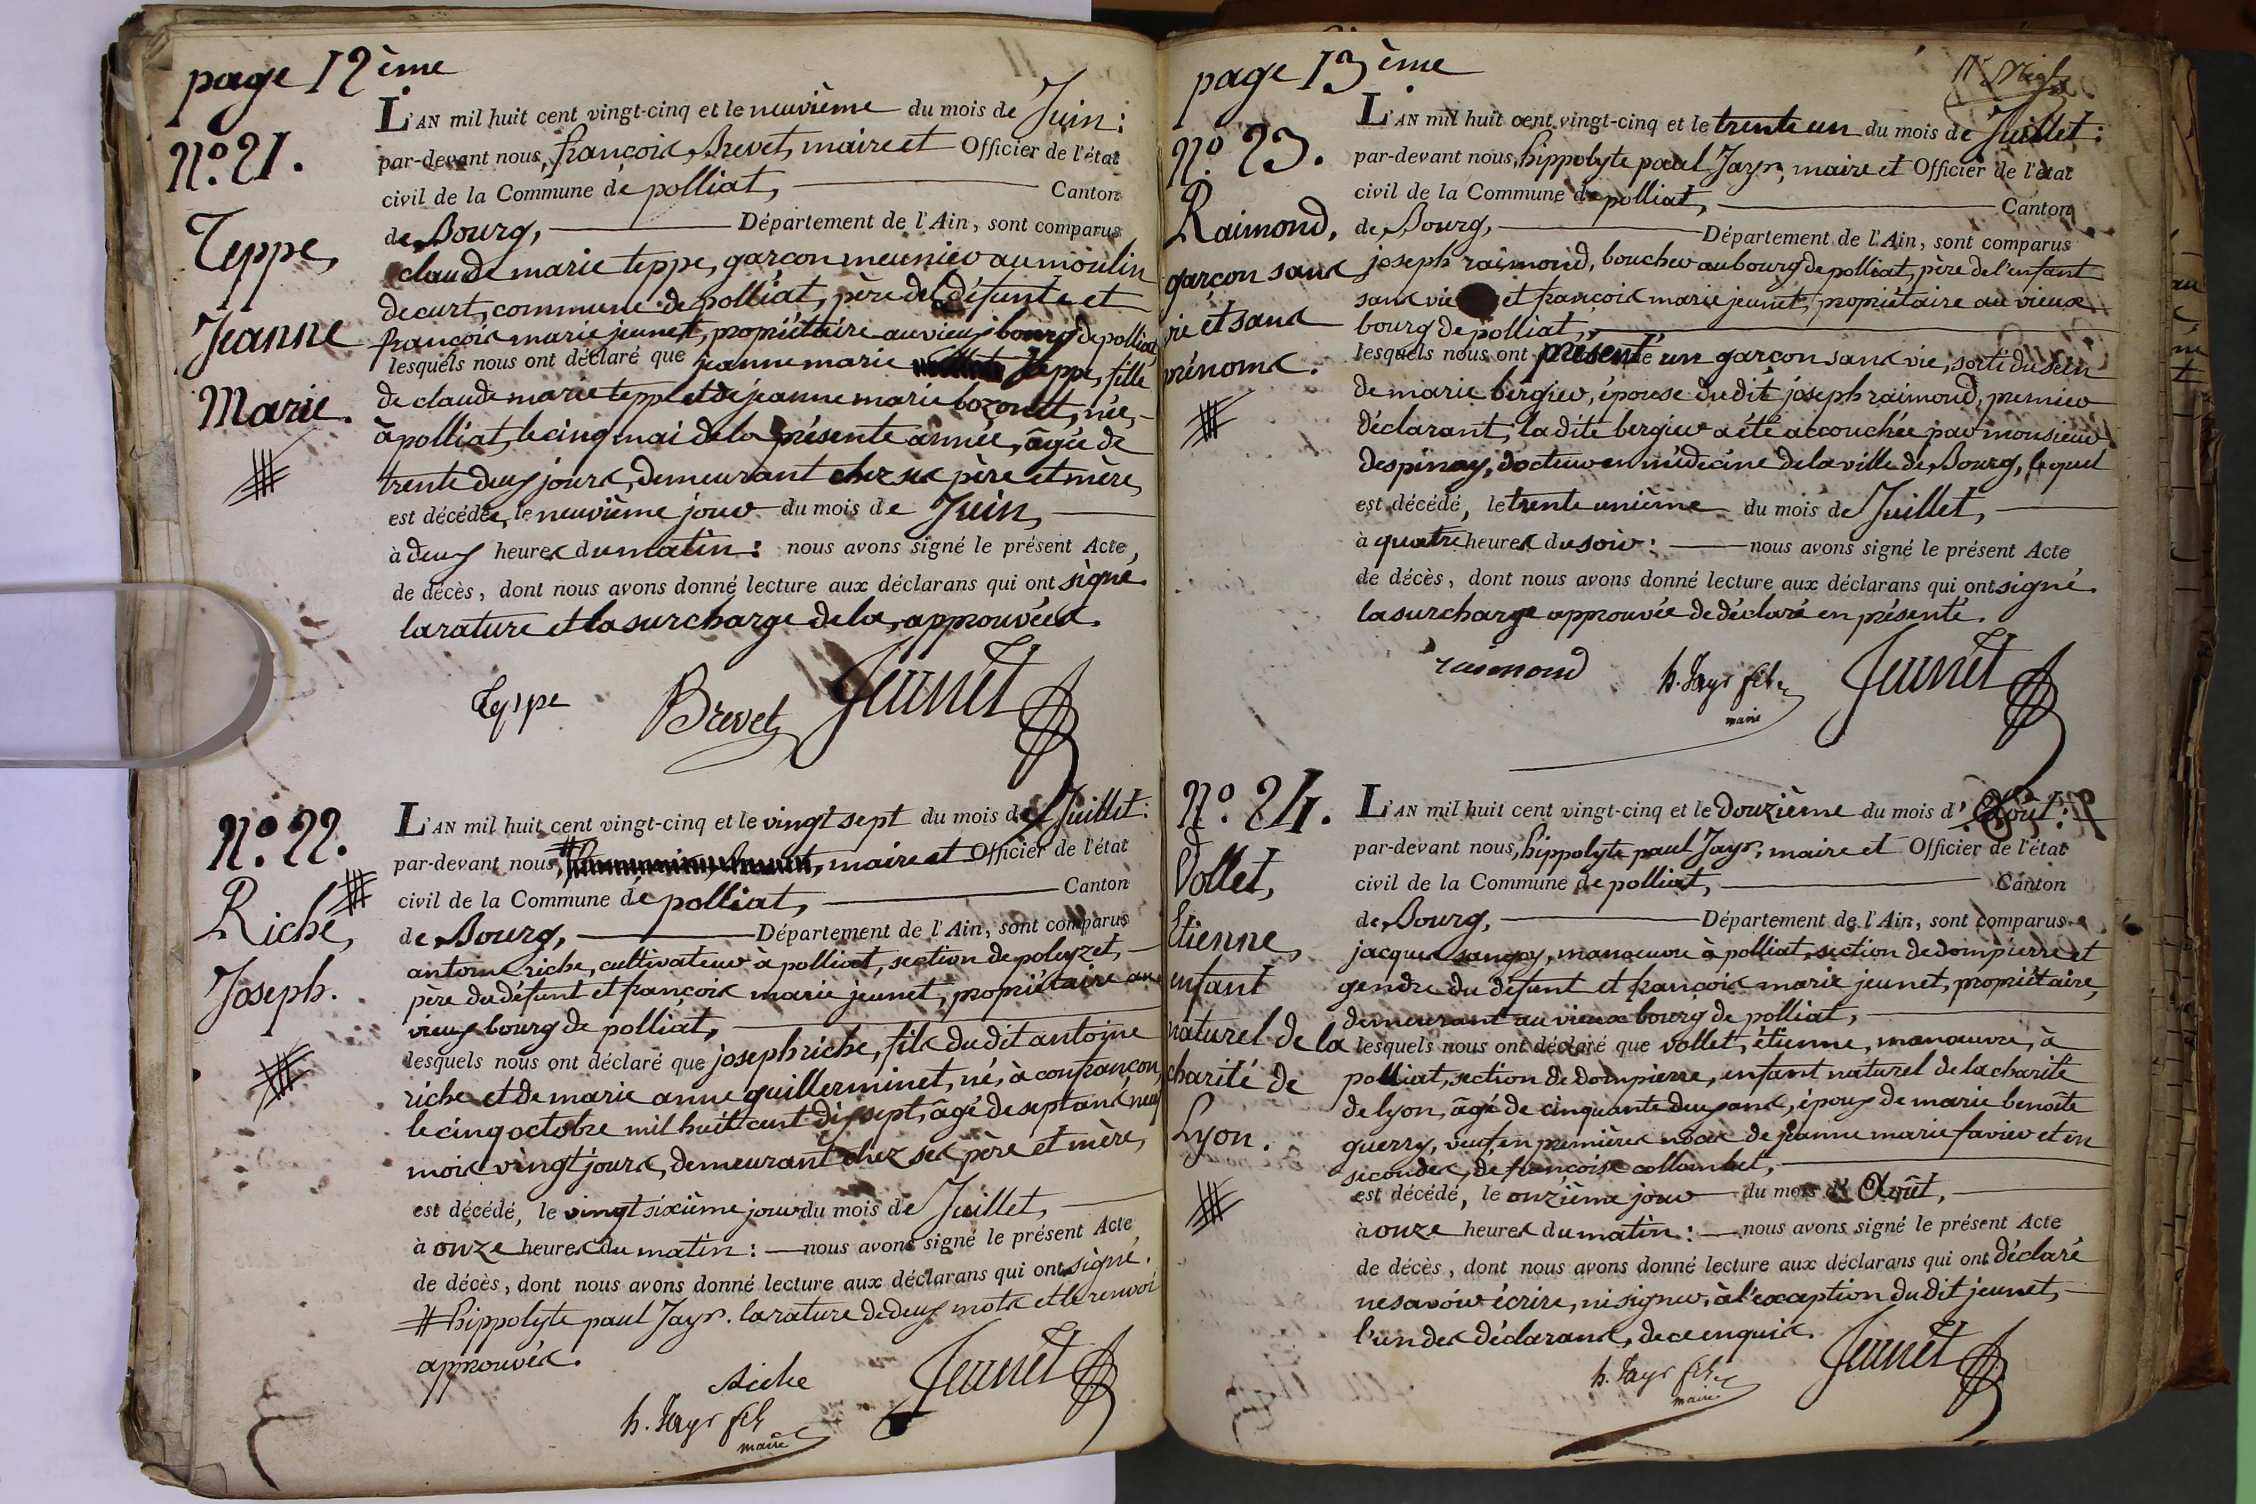 page 12ème
N.° 21.
Teppe,
Jeanne
Marie.
L'AN mil huit cent vingt-cinq et le neuvième du mois de Juin:
par-devant nous, françois Brevet, maire et Officier de l'état
civil de la Commune de polliat, Canton
de Bourg, Département de l'Ain, sont comparus
claude marie teppe, garçon meunier au moulin
de curt, commune de polliat, père de la défunte et
françois marie jeunet, propriétaire au vieux bourg de polliat
lesquels nous ont déclaré que jeanne marie teppe, fille
de claude marie teppe et de jeanne marie bozonet, née,
à polliat, le cinq mai de la présente année, âgée de
trente deux jours, demeurant chez ses père et mère,
est décédée, le neuvième jour du mois de Juin,
à deux heures du matin: nous avons signé le présent Acte,
de décès, dont nous avons donné lecture aux déclarans qui ont signé.
la rature et la surcharge de la, approuvées.
Teppe Brevet Jeunet
N.° 22.
Riche,
Joseph.
L'AN mil huit cent vingt-cinq et le vingt sept du mois de Juillet:
par-devant nous, # maire et Officier de l'état
civil de la Commune de polliat, Canton
de Bourg, Département de l'Ain, sont comparus
antoine riche, cultivateur à polliat, section de poleyzet,
père du défunt et françois marie jeunet, propriétaire au
vieux bourg de polliat,
lesquels nous ont déclaré que joseph riche, fils du dit antoine
riche et de marie anne guillerminet, né, à confrançon,
le cinq octobre mil huit cent dix sept, âgé de sept ans neuf
mois vingt jours, demeurant chez ses père et mère,
est décédé, le vingt sixième jour du mois de Juillet,
à onze heures du matin: nous avons signé le présent Acte
de décès, dont nous avons donné lecture aux déclarans qui ont signé.
# hippolyte paul Jayr. la rature de deux mots et le renvoi
approuvés.
Riche Jeunet
h. Jayr fils
maire
page 13ème
N.° 23.
Raimond,
garçon sans
vie et sans
prénoms.
L'AN mil huit cent vingt-cinq et le trente un du mois de Juillet:
par-devant nous, hippolyte paul Jayr, maire et Officier de l'état
civil de la Commune de polliat, Canton
de Bourg, Département de l'Ain, sont comparus
joseph raimond, boucher au bourg de polliat, père de l'enfant
sans vie et françois marie jeunet, propriétaire au vieux
bourg de polliat,
lesquels nous ont présenté un garçon sans vie, sorti du sein
de marie bergier, épouse du dit joseph raimond, premier
déclarant, la dite bergier a été accouchée par monsieur
despinay, docteur en médecine de la ville de Bourg, lequel
est décédé, le trente unième du mois de Juillet,
à quatre heures du soir: nous avons signé le présent Acte
de décès, dont nous avons donné lecture aux déclarans qui ont signé.
la surcharge approuvée de déclaré en présenté.
raimond h. Jayr fils Jeunet
maire
N.° 24.
Vollet,
Etienne,
enfant
naturel de la
charité de
Lyon.
L'AN mil huit cent vingt-cinq et le douzième du mois d'Août:
par-devant nous, hippolyte paul Jayr, maire et Officier de l'état
civil de la Commune de polliat, Canton
de Bourg, Département de l'Ain, sont comparus
jacques sangoy, manoeuvre à polliat, section de dompierre et
gendre du défunt et françois marie jeunet, propriétaire,
demeurant au vieux bourg de polliat,
lesquels nous ont déclaré que vollet, étienne, manoeuvre, à
polliat, section de dompierre, enfant naturel de la charité
de lyon, âgé de cinquante deux ans, époux de marie benoîte
guerry, veuf, en premières noces de jeanne marie favier et en
secondes, de françoise collombet,
est décédé, le onzième jour du mois d'Août,
à onze heures du matin: nous avons signé le présent Acte
de décès, dont nous avons donné lecture aux déclarans qui ont déclaré
ne savoir écrire, ni signer, à l'exception du dit jeunet,
l'un des déclarans, de ce enquis.
h. Jayr fils Jeunet
maire